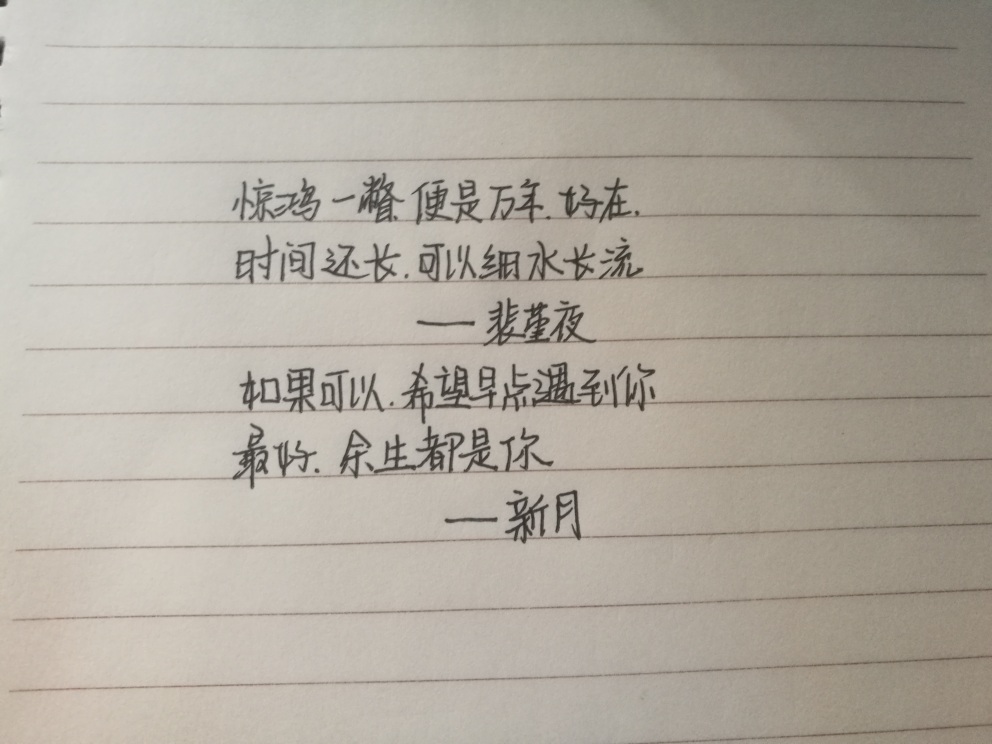 惊鸿一瞥.便是万年.好在.
时间还长.可以细水长流
——裴堇夜
如果可以.希望早点遇到你
最好.余生都是你
——新月